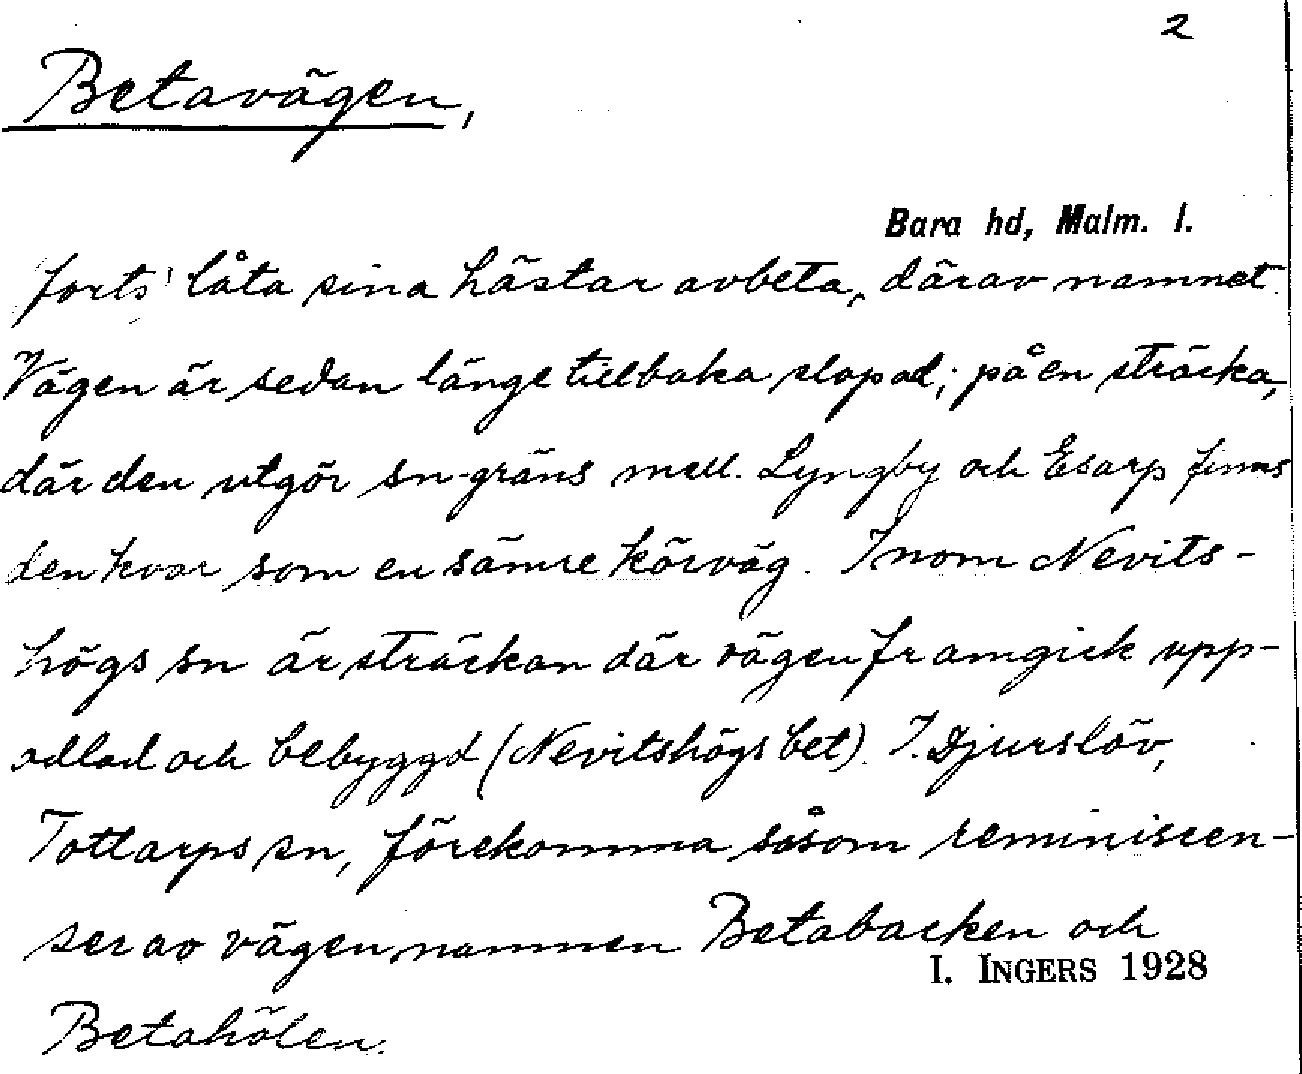 2
Betavägen,
Bara hd, Malm. l.
forts. låta sina hästar avbeta, därav namnet.
Vägen är sedan länge tillbaka slopad; på en sträcka,
där den utgör sn-gräns mell. Lyngby och Esarp finns
den kvar som en sämre körväg. Inom Nevits-
högs sn är sträckan där vägen framgick upp-
odlad och bebyggd (Nevitshögs bet). I Djurslöv,
Tottarps sn, förekomma såsom reminiscen-
ser av vägen namnen Betabacken och
I. INGERS 1928
Betahölen.